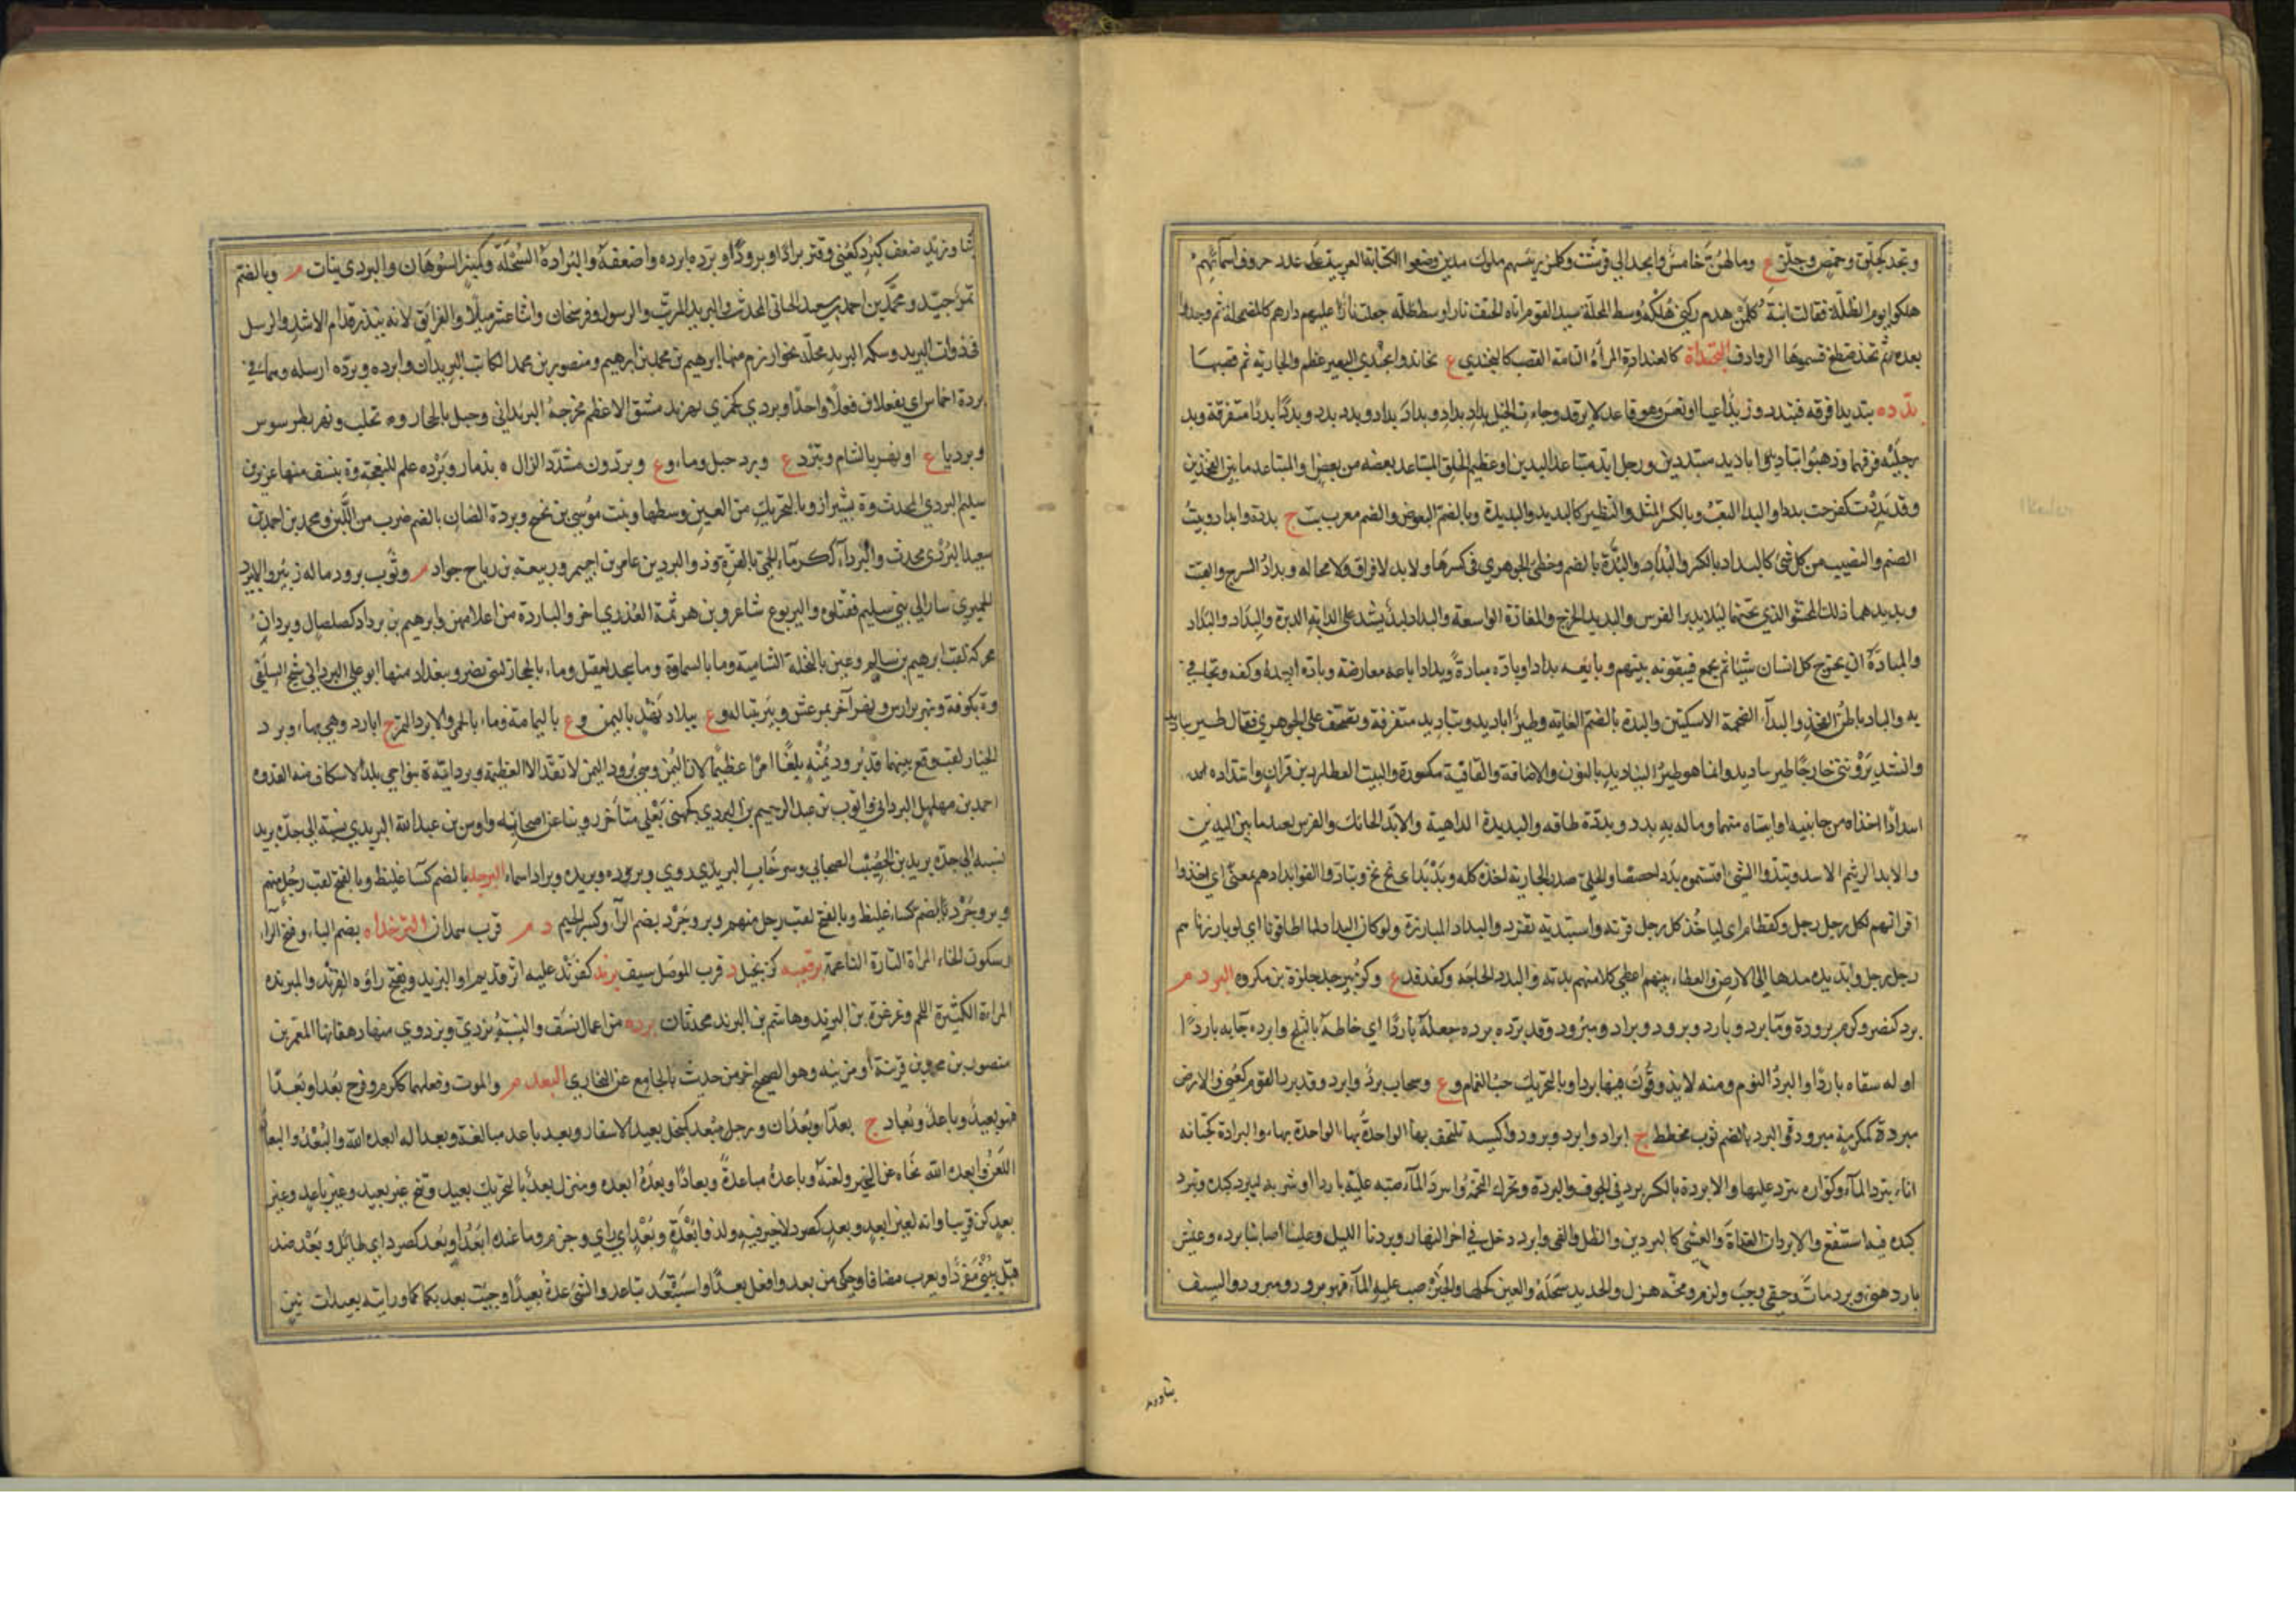 وبجد كجلق وحمص وجلز ع وما لهن خامس وابجد الى قرشت وكلمن رئيسهم ملوك مدين وضعوا الكتابة العربية على عدد حروف اسمائهم
هلكوا يوم الظلة فقالت ابنة كلمن هدم ركني هلكه وسط المحلة سيد القوم اتاه الحتف نارا وسط ظله جعلت نارا عليهم دارهم كالمضمحلة ثم وجدوا
بعدهم ثخذ ضظغ فسموها الروادف البخنداة كالعلنداة المرأة التامة القصب كالبخندى ع بخاند وابخندى البعير عظم والجارية تم قصبها
بدده تبديدا فرقه فتبدد وزيد اعيا او نعس وهو قاعد لا يرقد وجاءت الخيل بداد بداد وبداد بداد وبدد بدد وبددا بددا متفرقة وبد
رجليه فرقهما وذهبوا تباديد واباديد متبددين ورجل ابد متباعد اليدين او عظيم الخلق المتباعد بعضه من بعض او المتباعد ما بين الفخذين
وقد بددت كفرحت بددا والبد التعب وبالكسر المثل والنظير كالبديد والبديدة وبالضم البعوض والصنم معرب بت ج بددة وابداد وبيت
الصنم والنصيب من كل شئ كالبداد بالكسر والبداد والبدة بالضم وخطئ الجوهري في كسرها ولا بد لا فراق ولا محالة وبداد السرج والقتب
وبديدهما ذلك المحشو الذي تحتهما لئلا يدبر الفرس والبديد الخرج والمفازة الواسعة والبداد لبد يشد على الدابة الدبرة والبداد والبداد
والمبادة ان يخرج كل انسان شيئا ثم يجمع فينفقونه بينهم وبايعه بدادا وباده مبادة وبدادا باعه معارضة وبده ابعده وكفه وتجافى
به والباد باطن الفخذ والبداء الضخمة الاسكتين والبدة بالضم الغاية وطير اباديد وتباديد متفرقة وتصحف على الجوهري فقال طير يباديد
وانشد يرونني خارجا طير يباديد وانما هو طير اليناديد بالنون والاضافة والقافية مكسورة والبيت لعطارد بن قران وابتداه
ابتدادا اخذاه من جانبيه او اتياه منهما وما له به بدد وبدة طاقة والبديدة الداهية والابد الحائك والفرس بعيد ما بين اليدين
والابد الزنيم الاسد وتبددوا الشئ اقتسموه بددا حصصا والحلى صدر الجارية اخذه كله وبدبد اى بخ بخ وتبادوا القوا بدادهم بمعنى اى اخذوا
اقرانهم لكل رجل رجل وكقطام اى ليأخذ كل رجل قرنه واستبد به تفرد والبداد المبارزة ولو كان البداد لما اطاقونا اى لو بارزناهم
رجل برجل وابد يده مدها الى الارض والعطاء بينهم اعطى كلا منهم بدته والبدد الحاجة وكفدفد ع وكزبير جد جلزة بن مكروه البرد م
برد كنصر وكرم برودة وماء برد وبارد وبرود وبراد ومبرود وقد برده برده جعله باردا اى خلطه بالثلج وابرده جاء به باردا
او له سقاه باردا والبرد النوم ومنه لا يذوقون فيها بردا وبالتحريك حب الغمام وع وسحاب برد وابرد وقد برد القوم كعنى والارض
مبردة كمكرمة مبرودة والبرد بالضم ثوب مخطط ج ابراد وابرد وبرود واكسية تلتحف بها الواحدة بهاء والبرادة كجبانة
اناء يبرد الماء وكوارة يبرد عليها والابردة بالكسر برد في الجوف والبردة وتحرك التخمة وابترد الماء صبه عليه باردا او شربه ليبرد كبده وتبرد
كبده فيه استنقع والابردان الغداة والعشي كالبردين والظل والفئ وابرد دخل في اخر النهار وبردنا الليل وعلينا اصابنا برده وعيش
بارد هنئ وبرد مات وحقي وجب ولزم ومخه هزل والحديد سحله والعين كحلها والخبز صب عليه الماء فهو برود ومبرود والسيف
نبا وزيد
نبا وزيد ضعف كبرد كعنى وفتر برادا وبرودا وبرده ابرده واضعفه والبرادة السحالة وكمنبر السوهان والبردي نبات م وبالضم
تمر جيد ومحمد بن احمد بن سعيد الجياني المحدث والبريد المرتب والرسول وفرسخان واثنا عشر ميلا والفرانق لانه ينذر قدام الاسد والرسل
على دواب البريد وسكة البريد محلة بخوارزم منها ابرهيم بن محمد بن ابرهيم ومنصور بن محمد الكاتب البريديان وابرده وبرده ارسله وهما في
بردة اخماس اى يفعلان فعلا واحدا وبردى كجمزى نهر دمشق الاعظم مخرجه الزبداني وجبل بالحجاز وة بحلب ونهر بطرسوس
وبرديا ع او نهر بالشام وتبرد ع وبرد جبل وماء وع وبردون مشددة الدال ة بذمار وبردة علم للنعجة وة بنسف منها عزيز بن
سليم البردي المحدث وة بشيراز وبالتحريك من العين وسطها وبنت موسى بن نجيح وبردة الضان بالضم ضرب من اللبن ومحمد بن احمد بن
سعيد البردي محدث والبرداء ككرماء الحمى بالقرة وذو البردين عامر بن احيمر وربيعة بن رياح جواد م وثوب برود ما له زئبر والابيرد
الحميري سار الى بني سليم فقتلوه واليربوع شاعر وبن هرثمة العذري اخر والباردة من اعلامهن وابرهيم بن برداد كصلصال وبردان
محركة لقب ابرهيم بن سالم وعين بالنخلة الشامية وماء بالسماوة وماء بنجد لعقيل وماء بالحجاز لبني نصر وببغداد منها ابو علي البرداني شيخ السلفي
وة بكوفة ونهر بطرسوس ونهر آخر بمرعش وبئر بتبالة وع ببلاد نهد باليمن وع باليمامة وماء بالحمى والابرد النمر ج ابارد وهي بهاء وبرد
الخيار لقب ووقع بينهما قد برود يمنة بلغا امرا عظيما لان اليمن وهي برود اليمن لا تقد الا لعظيمة وبردانية ة بنواحي بلد الاسكاف منه القدوة
احمد بن مهلهل البرداني وايوب بن عبد الرحيم بن البردي كجهني بعلي متاخر روينا عن اصحابه واوس بن عبد الله البريدي نسبة الى جده بريد
نسبه الى جده بريدة بن الحصيب الصحابي وسرخاب البريدي روى وبردة وبريدة وبراد اسماء البرجد بالضم كساء غليظ وبالفتح لقب رجل منهم
وبروجرد بالضم كساء غليظ وبالفتح لقب رجل منهم وبروجرد بضم الراء وكسر الجيم د م قرب همدان البرخداة بضم الباء وفتح الراء
وسكون الخاء المراة التارة الناعمة برقعيد كزنجبيل د قرب الموصل سيف برند كفرند عليه اثر قديم او البرند وبفتح راؤه الفرند والمبرندة
المراة الكثيرة اللحم وعرعرة بن البرند وهاشم بن البرند محدثان بزدة من اعمال نسف والنسبة بزدي وبزدوي منها دهقانها المعمر بن
منصور بن محمد بن قرينة او مزينة وهو الصحيح اخر من حدث بالجامع عن البخاري البعد م والموت وفعلهما ككرم وفرح بعدا وبعدا
فهو بعيد وباعد وبعاد ج بعداء وبعدان ورجل مبعد كمنجل بعيد الاسفار وبعد باعد مبالغة وبعدا له ابعده الله والبعد والبعاد
اللعن وابعده الله نحاه عن الخير ولعنه وباعده مباعدة وبعادا وبعده ابعده ومنزل بعد بالتحريك بعيد وتنح غير بعيد وغير باعد وغير
بعد كن قريبا وانه لغير ابعد وبعد كصرد لا خير فيه ولذو بعدة وبعد اى راى وحزم وما عنده ابعد او بعد كصرد اى طائل وبعد ضد
قبل يبنى مفردا ويعرب مضافا وحكى من بعد وافعل بعدا واستبعد تباعد والشئ عده بعيدا وجئت بعدكما ورايته بعيدات بين